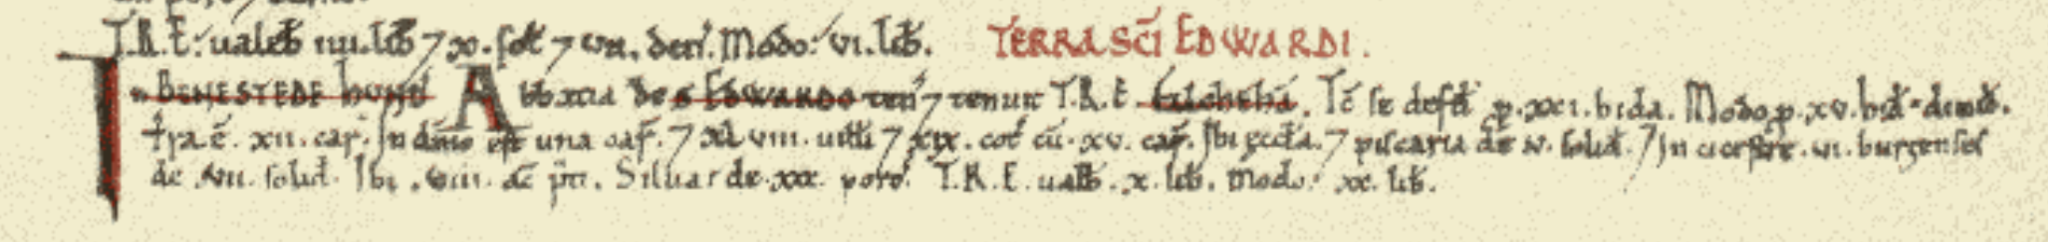 T.R.E. ualeb iiii. lib 7 x. sol 7 vii. den. Modo. vi. lib. TERRA SCI EDWARDI.
In BENESTEDE HUND Abbatia de S EDWARDO ten 7 tenuit T.R.E. Felcheha. Tc se defd p. xxi. hida. Modo p. xv. hid dimid.
Tra e. xii. car. In dnio est una car. 7 xl viii. uilli 7 xix. cot cu. xv. car. Ibi eccla. 7 piscaria de v. solid. 7 In cicestre. vi. burgenses
de vii. solid. Ibi. viii. ac pti. Silua de xxx. porc. T.R.E. ualb. x. lib. modo. xx. lib.